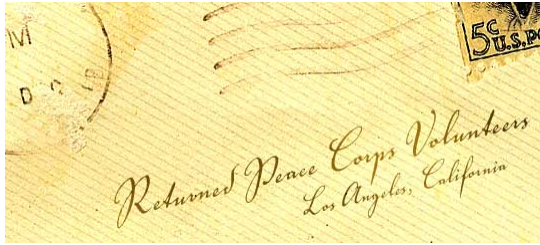 M
D C
5c
U.S. PO
Returned Peace Corps Volunteers
Los Angeles, California